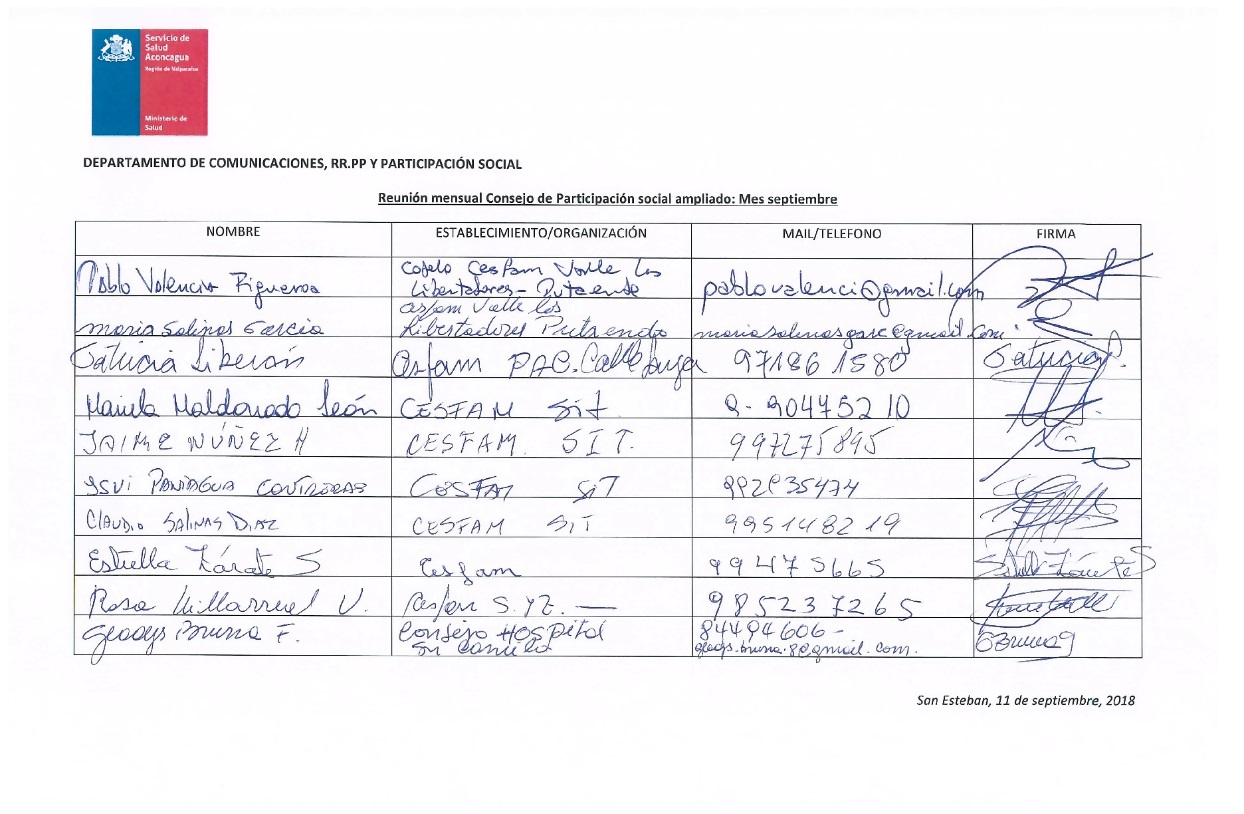 Servicio de
Salud
Aconcagua
Región de Valparaíso
Ministerio de
Salud
DEPARTAMENTO DE COMUNICACIONES, RR.PP Y PARTICIPACIÓN SOCIAL
Reunión mensual Consejo de Participación social ampliado: Mes septiembre
NOMBRE ESTABLECIMIENTO/ORGANIZACIÓN MAIL/TELEFONO FIRMA
Pablo Valencia Figueroa Cesfam Valle los
Libertadores - Putaendo pablovalenci@gmail.com
Valle los
maria Salinas Garcia Libertadores Putaendo mariasalinasgarc@gmail.com
Patricia 97186 1580 Patricia
Maldonado León CESFAM Sit 9-90475210
JAIME NÚÑEZ H CESFAM SIT. 997275895
PANIAGUA CONTRERAS CESFAM SIT
CLAUDIO SALINAS DIAZ CESFAM SIT 995148219
Estrella Zárate S Cesfam 99475665
Rosa Villarruel V. Cesfam S.YZ. 985237265
Gladys Bruna F. Consejo HOSPital 84494606-
Sn Camilo gladys.bruna.8@gmail.com. GBruna
San Esteban, 11 de septiembre, 2018